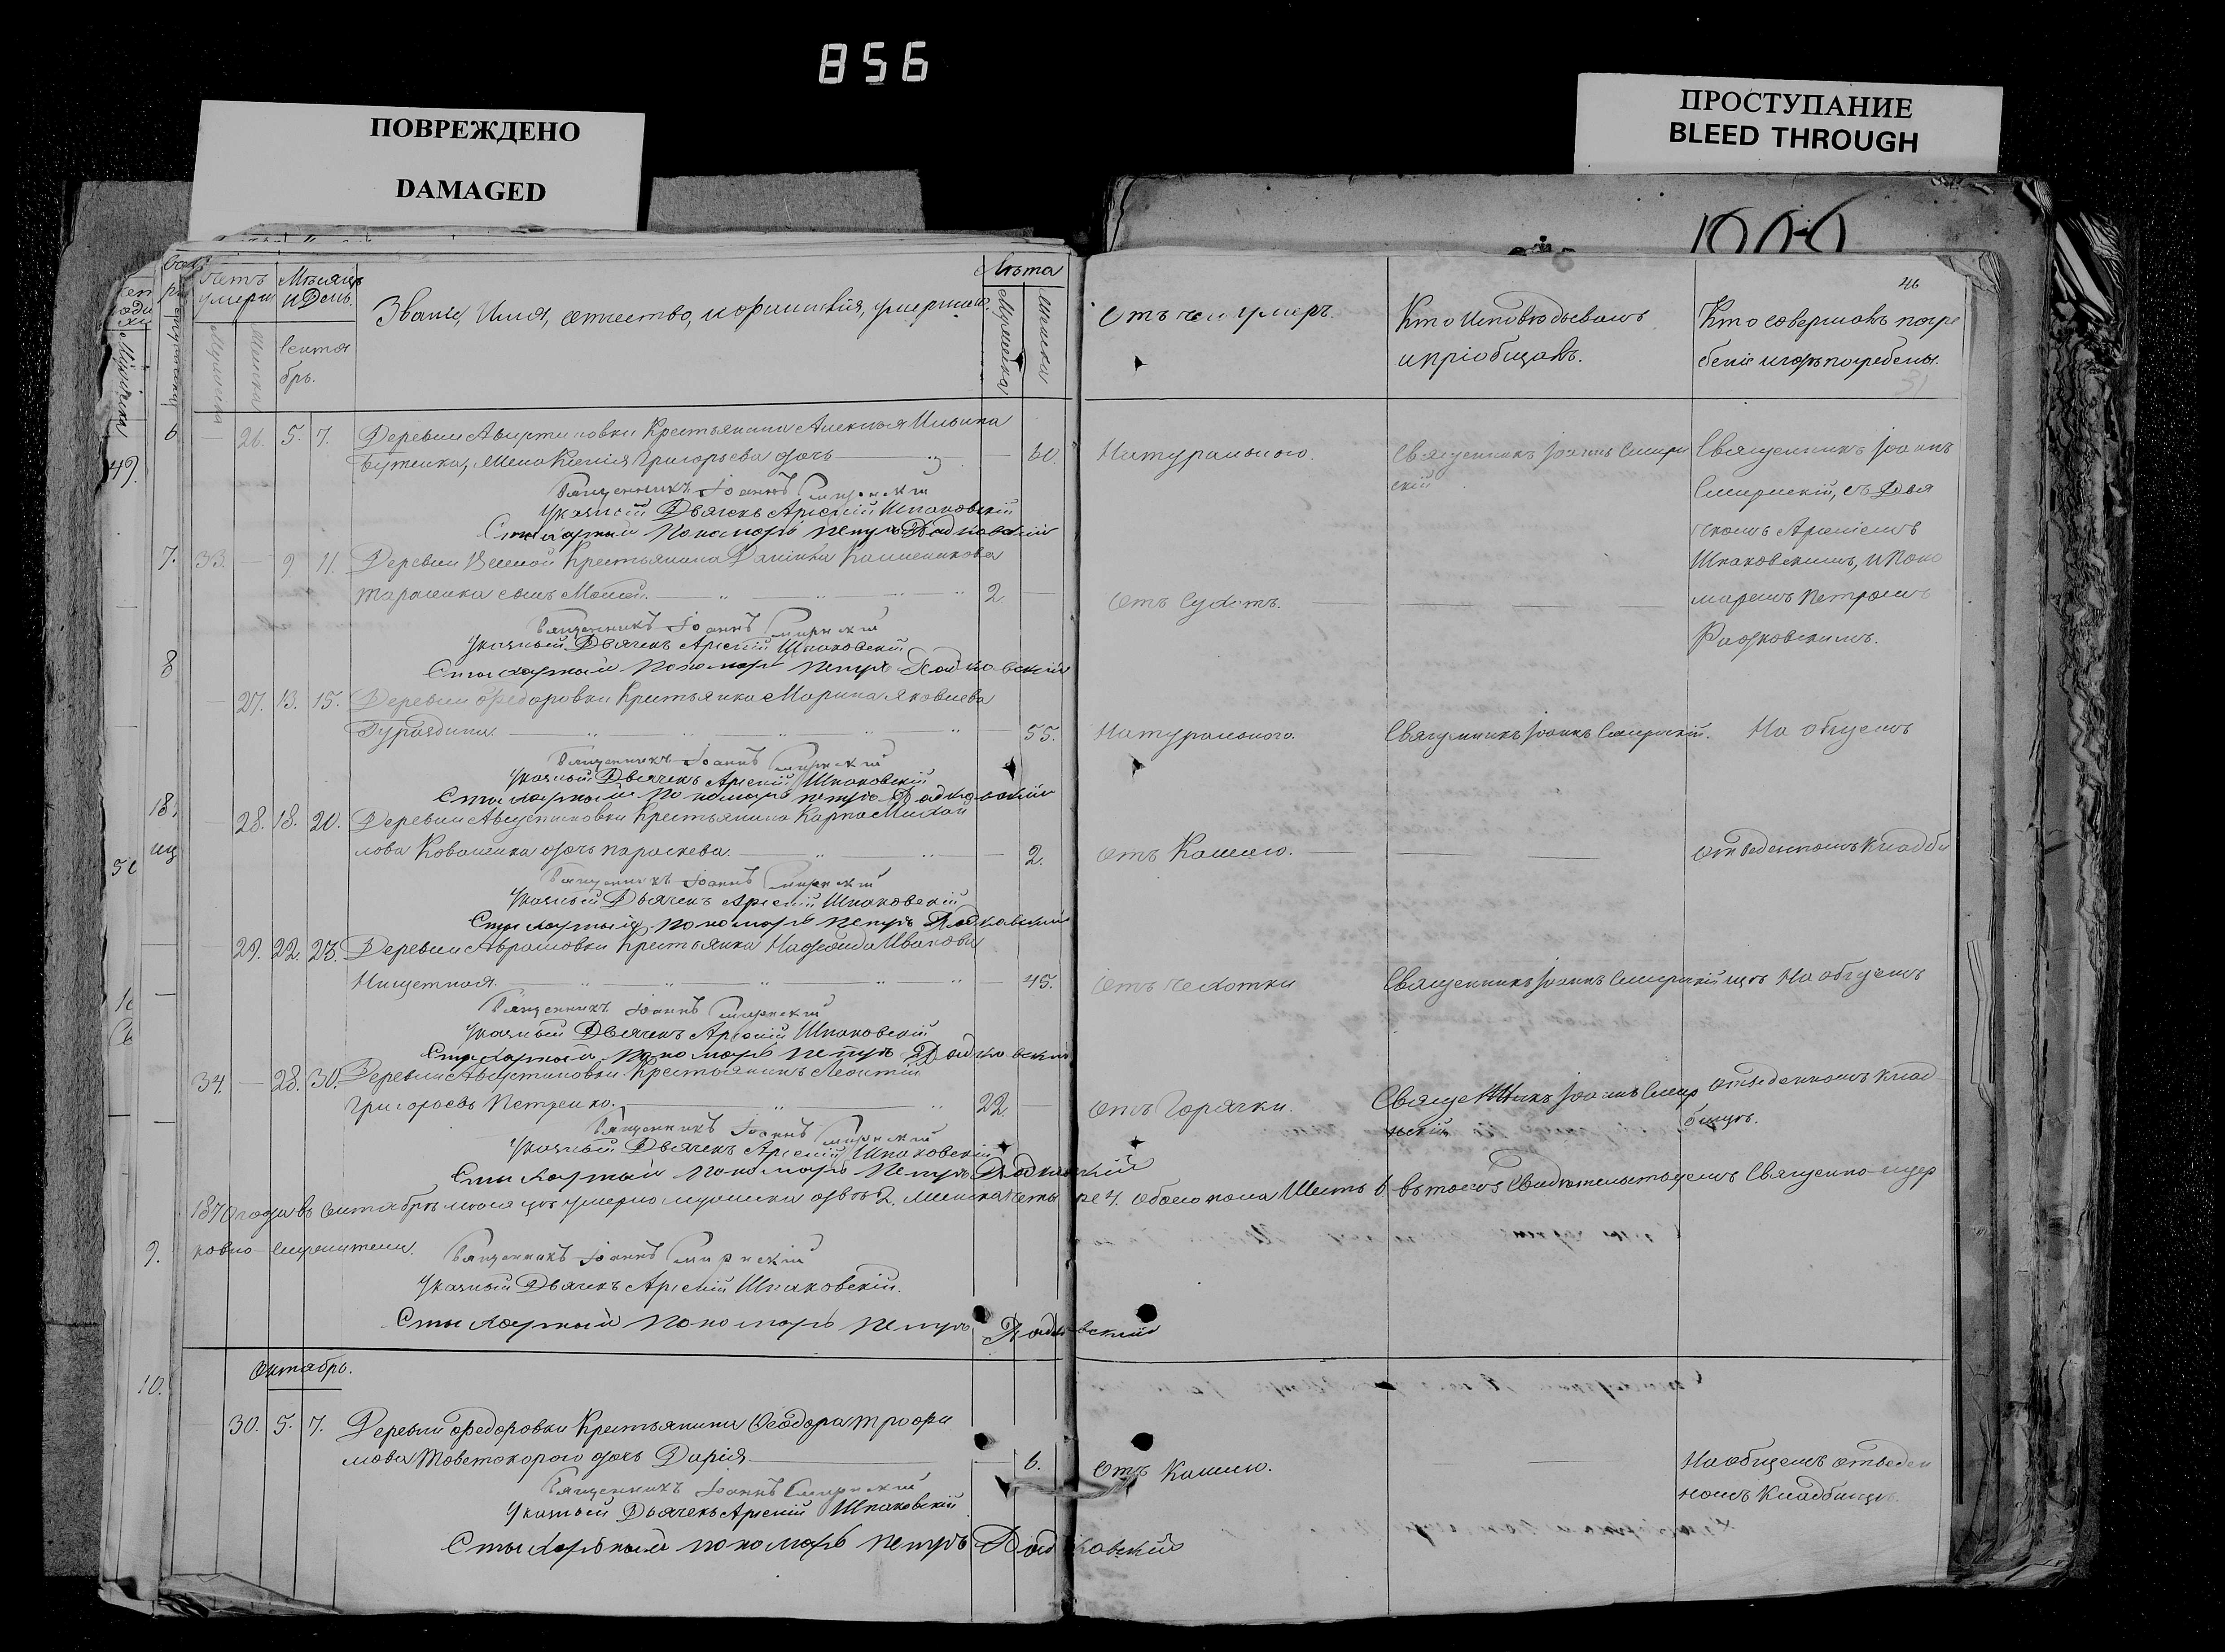 856
ПОВРЕЖДЕНО
DAMAGED
ПРОСТУПАНИЕ
BLEED THROUGH
46
Мѣсяцъ и День.
Званіе, Имя, отчество, и фамилія, умершаго.
Лѣта
Отъ чего умеръ.
Кто Исповѣдывалъ
и пріобщалъ.
Кто совершалъ погре
беніе и гдѣ погребены.
Сентя
брь.
26. 5. 7. Деревни Августиновки Крестьянина Алексѣя Ильина
Бутенка, жена Ксенія Григорьева дочь 60. Натуральною. Священникъ Іоаннъ Смирн
скій
Священникъ Іоаннъ
Смирнскій, съ Дья
чкомъ Арсеніемъ
Шпаковскимъ, и Поно
маремъ Петромъ
Радковскимъ.
Священникъ Іоаннъ Смирнскій
Указный Дьячекъ Арсеній Шпаковскій
Стихарный Пономарь Петръ Радковскій
33. — 9 11. Деревни Крестьянина Даніила
сынъ 2. Отъ Сухотъ.
Священникъ Іоаннъ Смирнскій
Указный Дьячекъ Арсеній Шпаковскій
Стихарный Пономарь Петръ Радковскій
27. 13. 15. Деревни Федоровки Крестьянка Марина Яковлева
55. Натуральною. Священникъ Іоаннъ Смирнскій. На общемъ
Священникъ Іоаннъ Смирнскій
Указный Дьячекъ Арсеній Шпаковскій
Стихарный Пономарь Петръ Радковскій
28. 18. 20. Деревни Августиновки Крестьянина Карпа Михай
лова Коваленка дочь Параскева. 2. Отъ Кашлю. отведенномъ Кладби
Священникъ Іоаннъ Смирнскій
Указный Дьячекъ Арсеній Шпаковскій
Стихарный Пономарь Петръ Радковскій
29. 22. 23. Деревни Абрамовки Крестьянка Надежда Иванова
Нищетная. 45. Отъ чехотки Священникъ Іоаннъ Смирнскій щѣ На общемъ
Священникъ Іоаннъ Смирнскій
Указный Дьячекъ Арсеній Шпаковскій
Стихарный Пономарь Петръ Радковскій
34. — 28. 30. Деревни Августиновки Крестьянинъ Леонтій
Григорьевъ Петренко. 22. Отъ Горячки. Священникъ Іоаннъ Смир
нскій
отведенномъ клад
бищѣ.
Священникъ Іоаннъ Смирнскій
Указный Дьячекъ Арсеній Шпаковскій
Стихарный Пономарь Петръ Радковскій
1870 года въ Сентябрѣ мѣсяцѣ умерло мужеска двѣ 2. женска четыре 4. обоего пола Шесть 6 въ томъ Свидѣтельствуемъ Священно-цер
ковно-служители.
Священникъ Іоаннъ Смирнскій
Указный Дьячекъ Арсеній Шпаковскій.
Стихарный Пономарь Петръ Радковскій
Октябрь.
30. 5. 7. Деревни Федоровки Крестьянина Ѳеодора Трофи
мова дочь Дарія 6. Отъ Кашлю. На общемъ отведен
номъ Кладбищѣ.
Священникъ Іоаннъ Смирнскій
Указный Дьячекъ Арсеній Шпаковскій
Стихарьный пономарь Петръ Радковскій